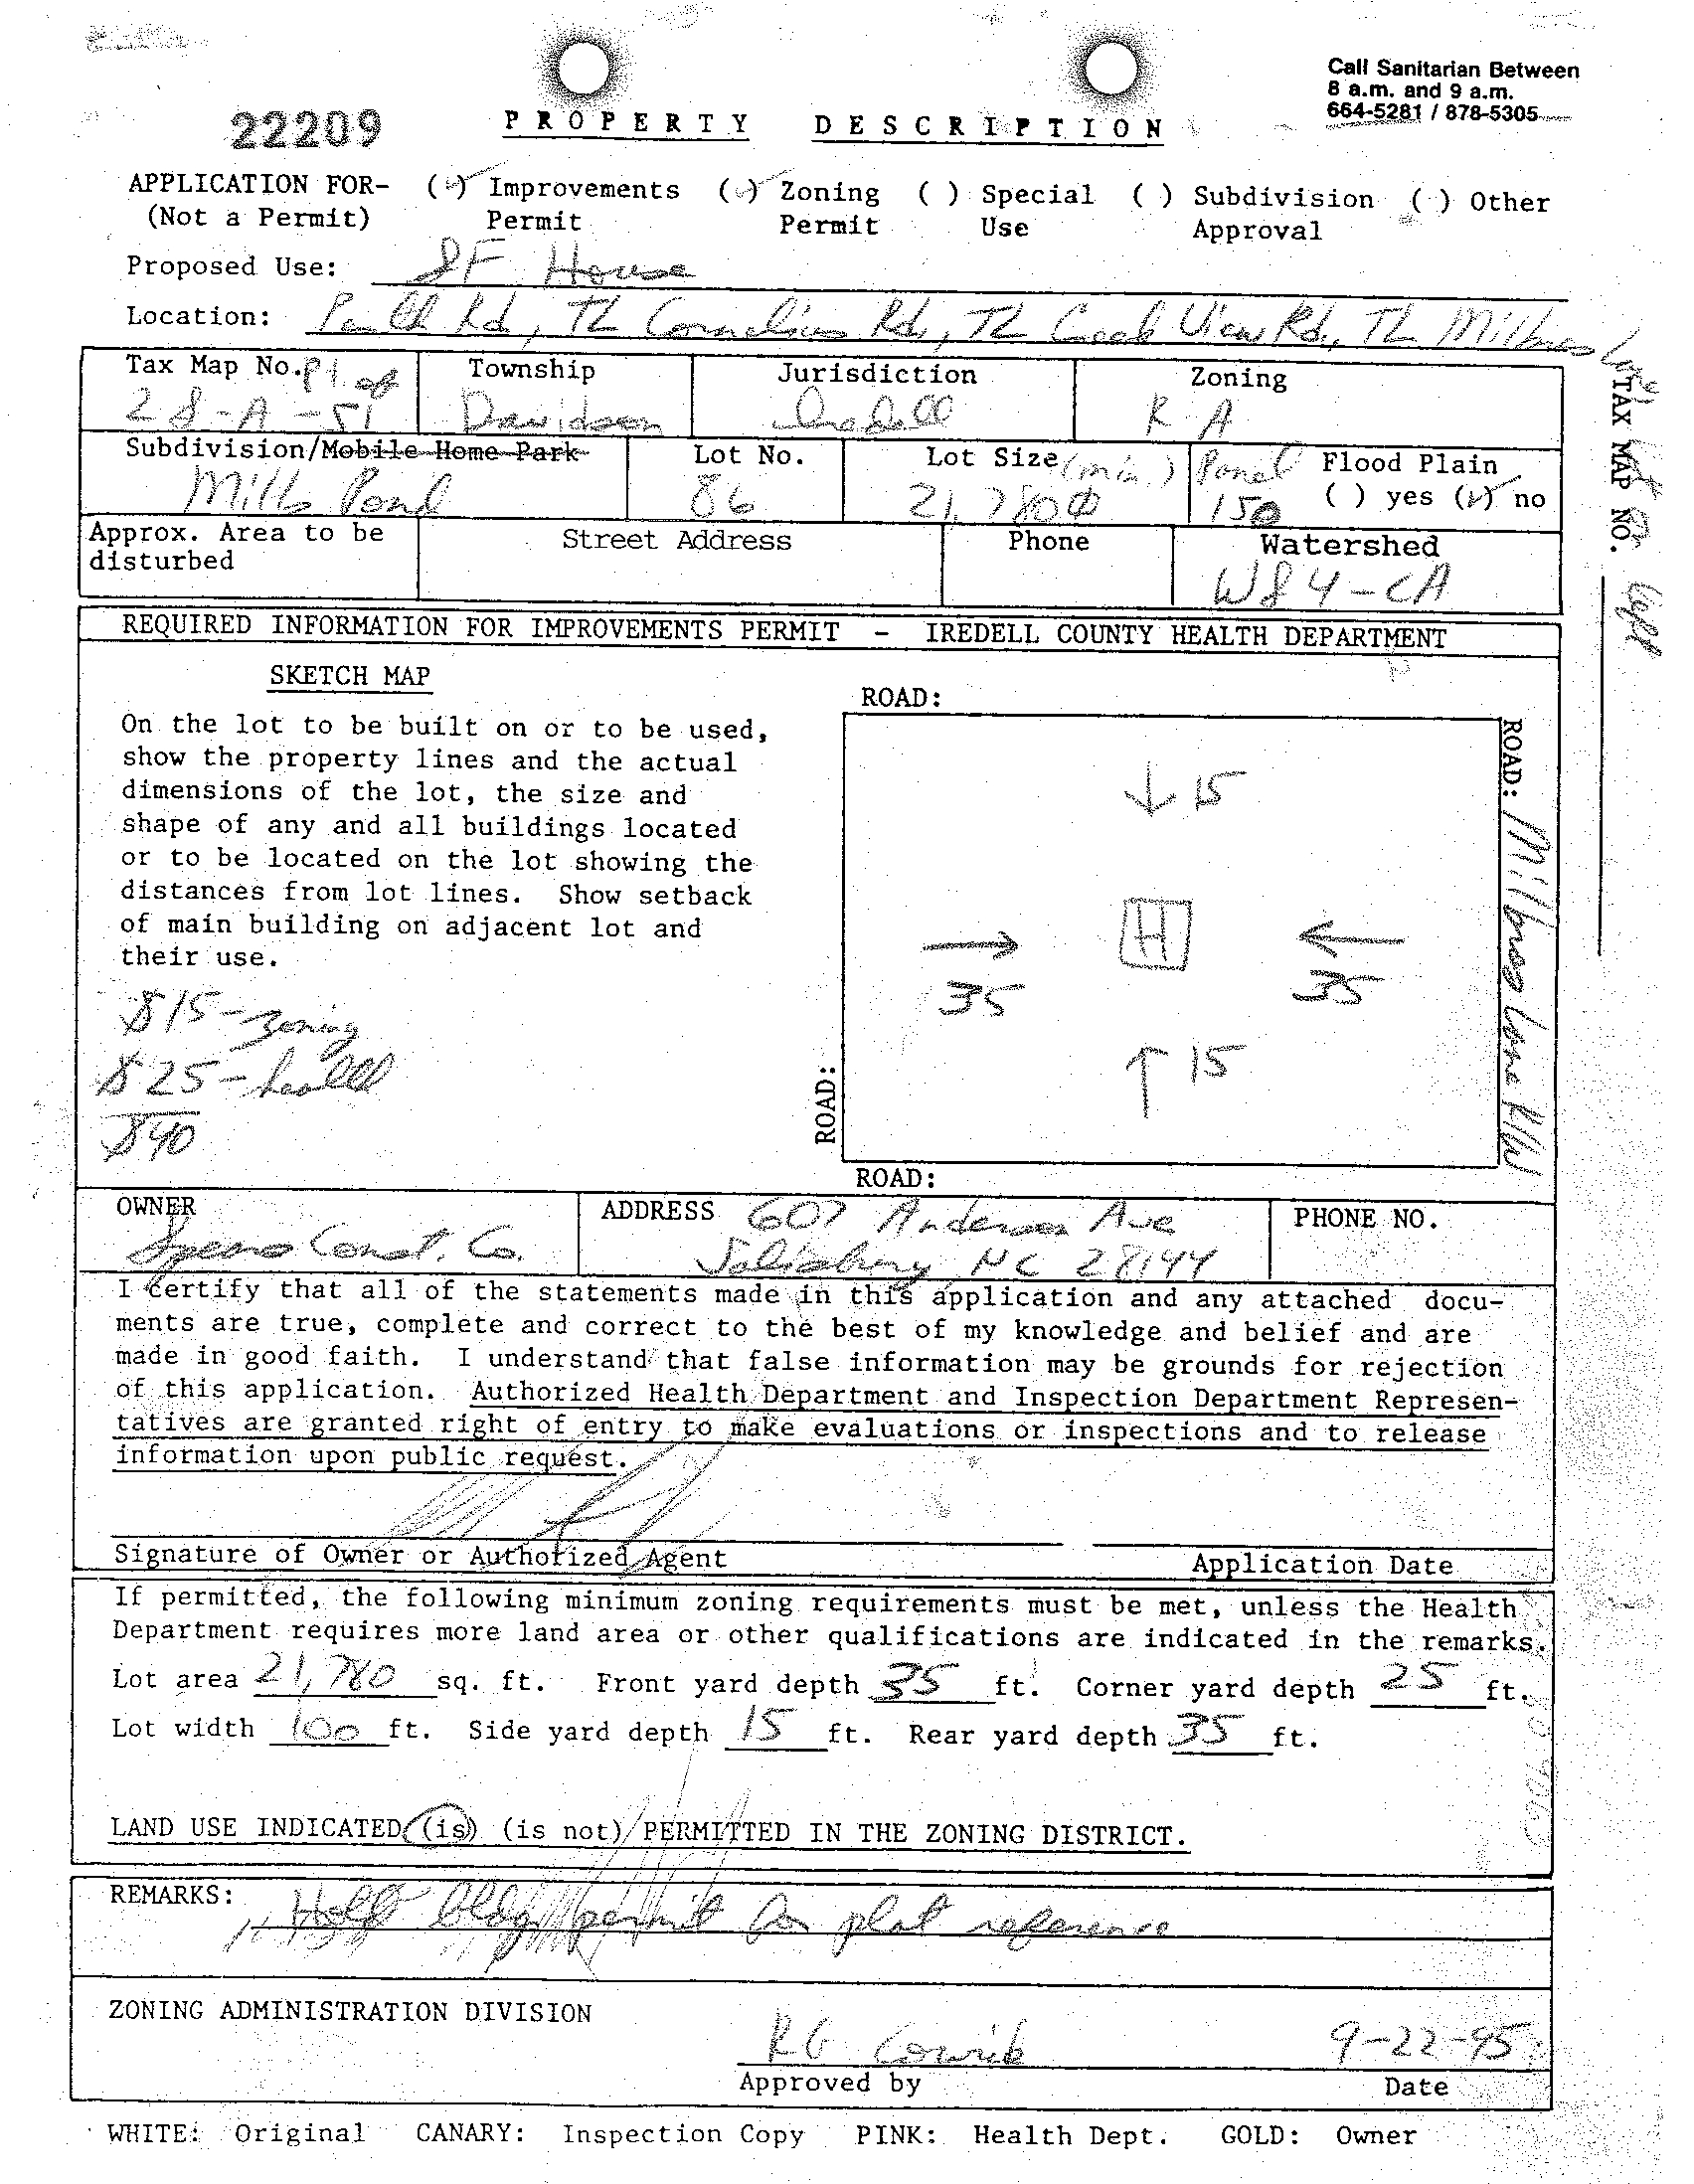 Call Sanitarian Between
8 a.m. and 9 a.m.
664-5281 / 878-5305
22209
PROPERTY DESCRIPTION
APPLICATION FOR- (✓) Improvements (✓) Zoning ( ) Special ( ) Subdivision ( ) Other
(Not a Permit) Permit Permit Use Approval
Proposed Use: SF House
Location: Perth Rd, TL Cornelius Rd, TL Creek View Rd, TL Millones Lane
Lot on left
Tax Map No. Pt. of Township Jurisdiction Zoning
28-A-51 Davidson Iredell RA
Subdivision/Mobile Home Park Lot No. Lot Size (min.) Panel Flood Plain
Mills Pond 86 21,780 150 ( ) yes (✓) no
Approx. Area to be Street Address Phone Watershed
disturbed WS4-CA
TAX MAP NO.
REQUIRED INFORMATION FOR IMPROVEMENTS PERMIT - IREDELL COUNTY HEALTH DEPARTMENT
SKETCH MAP
On the lot to be built on or to be used,
show the property lines and the actual
dimensions of the lot, the size and
shape of any and all buildings located
or to be located on the lot showing the
distances from lot lines. Show setback
of main building on adjacent lot and
their use.
$15-zoning
$25-health
$40
ROAD:
↓ 15
→ H ←
35 35
↑ 15
ROAD: Lane R/W
ROAD:
ROAD:
OWNER ADDRESS 607 Anderson Ave PHONE NO.
Const. Co. Salisbury NC 28144
I certify that all of the statements made in this application and any attached docu-
ments are true, complete and correct to the best of my knowledge and belief and are
made in good faith. I understand that false information may be grounds for rejection
of this application. Authorized Health Department and Inspection Department Represen-
tatives are granted right of entry to make evaluations or inspections and to release
information upon public request.
Signature of Owner or Authorized Agent Application Date
If permitted, the following minimum zoning requirements must be met, unless the Health
Department requires more land area or other qualifications are indicated in the remarks.
Lot area 21,780 sq. ft. Front yard depth 35 ft. Corner yard depth 25 ft.
Lot width 100 ft. Side yard depth 15 ft. Rear yard depth 35 ft.
LAND USE INDICATED (is) (is not) PERMITTED IN THE ZONING DISTRICT.
REMARKS: Hold bldg permit for plat reference
ZONING ADMINISTRATION DIVISION
RG 9-22-95
Approved by Date
WHITE: Original CANARY: Inspection Copy PINK: Health Dept. GOLD: Owner